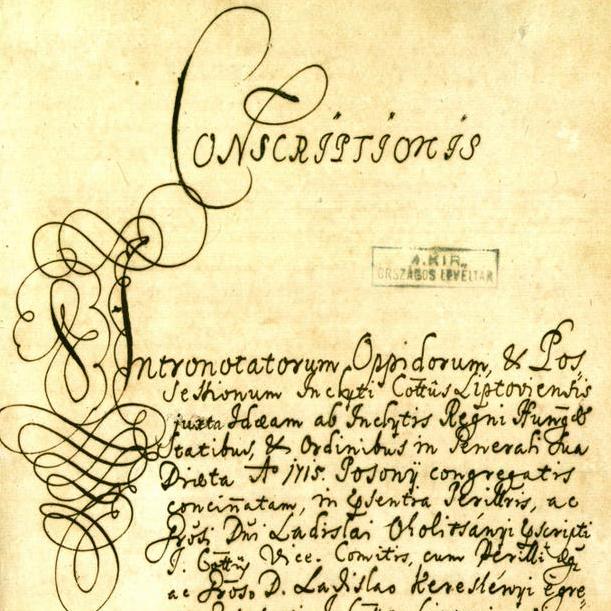 CONSCRIPTIONIS
M. KIR.
ORSZÁGOS LEVÉLTÁR
Intronotatorum Oppidorum, & Pos,
sessionum Inclyti Cottûs Liptoviensis
juxta Idæam ab Inclytis Regni Hung
Statibus, & Ordinibus in Generali Sua
Diæta Aō 1715. Posonij congregatis
concinatam, in Perillris, ac
Grosi Dni Ladislai Okolitsányi
I. Cottûs Vice. Comitis, cum Perilli
ac Groso D. Ladislao Kereslényi Egre,